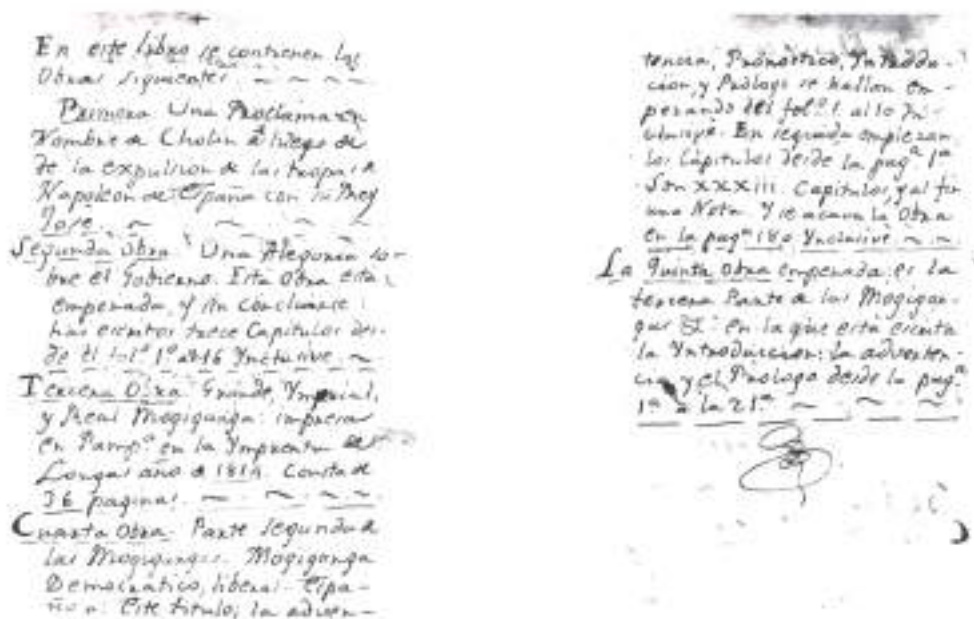 En este libro se contienen las
Obras siguientes ~ ~ ~ ~
Primera. Una Proclama en
Nombre de Cholin luego de
de la expulsion de las tropas de
Napoleon de España con su Rey
Jose. ~ ~ ~ ~
Segunda Obra. Una Alegoria so-
bre el Gobierno. Esta Obra está
empezada, y sin concluirse:
hai escritos trece Capitulos des-
de el fol.º 1º al 16 Ynclusive. ~
Tercera Obra. Grande, Ymperial,
y Real Mogiganga: impresa
en Pamp.ª en la Ymprenta de
Longas año de 1814. Consta de
36 paginas. ~ ~ ~ ~ ~
Cuarta Obra. Parte Segunda de
las Mogigangas. Mogiganga
Democratico, liberal-Espa-
ñola: Este titulo, la adver-
tencia, Pronostico, Yntrodu-
cion, y Prologo se hallan em-
pezando del fol.º 1. al 10 Yn-
clusive. En seguida empiezan
los Capitulos desde la pag.ª 1ª
Son XXXIII. Capitulos, y al fin
una Nota. Y se acava la Obra
en la pag.ª 180 Ynclusive ~ ~
La Quinta Obra empezada: es la
tercera Parte de las Mogigan-
gas en la que está escrita
la Yntroduccion: la adverten-
cia y el Prologo desde la pag.ª
1ª a la 21.ª ~ ~ ~ ~